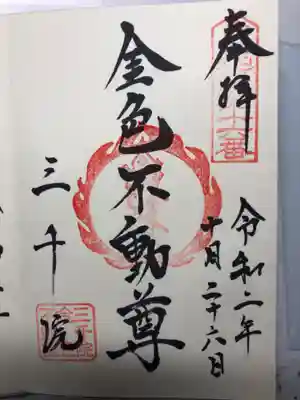 奉拝
令和二年
十月二十六日
金色不動尊
三千院